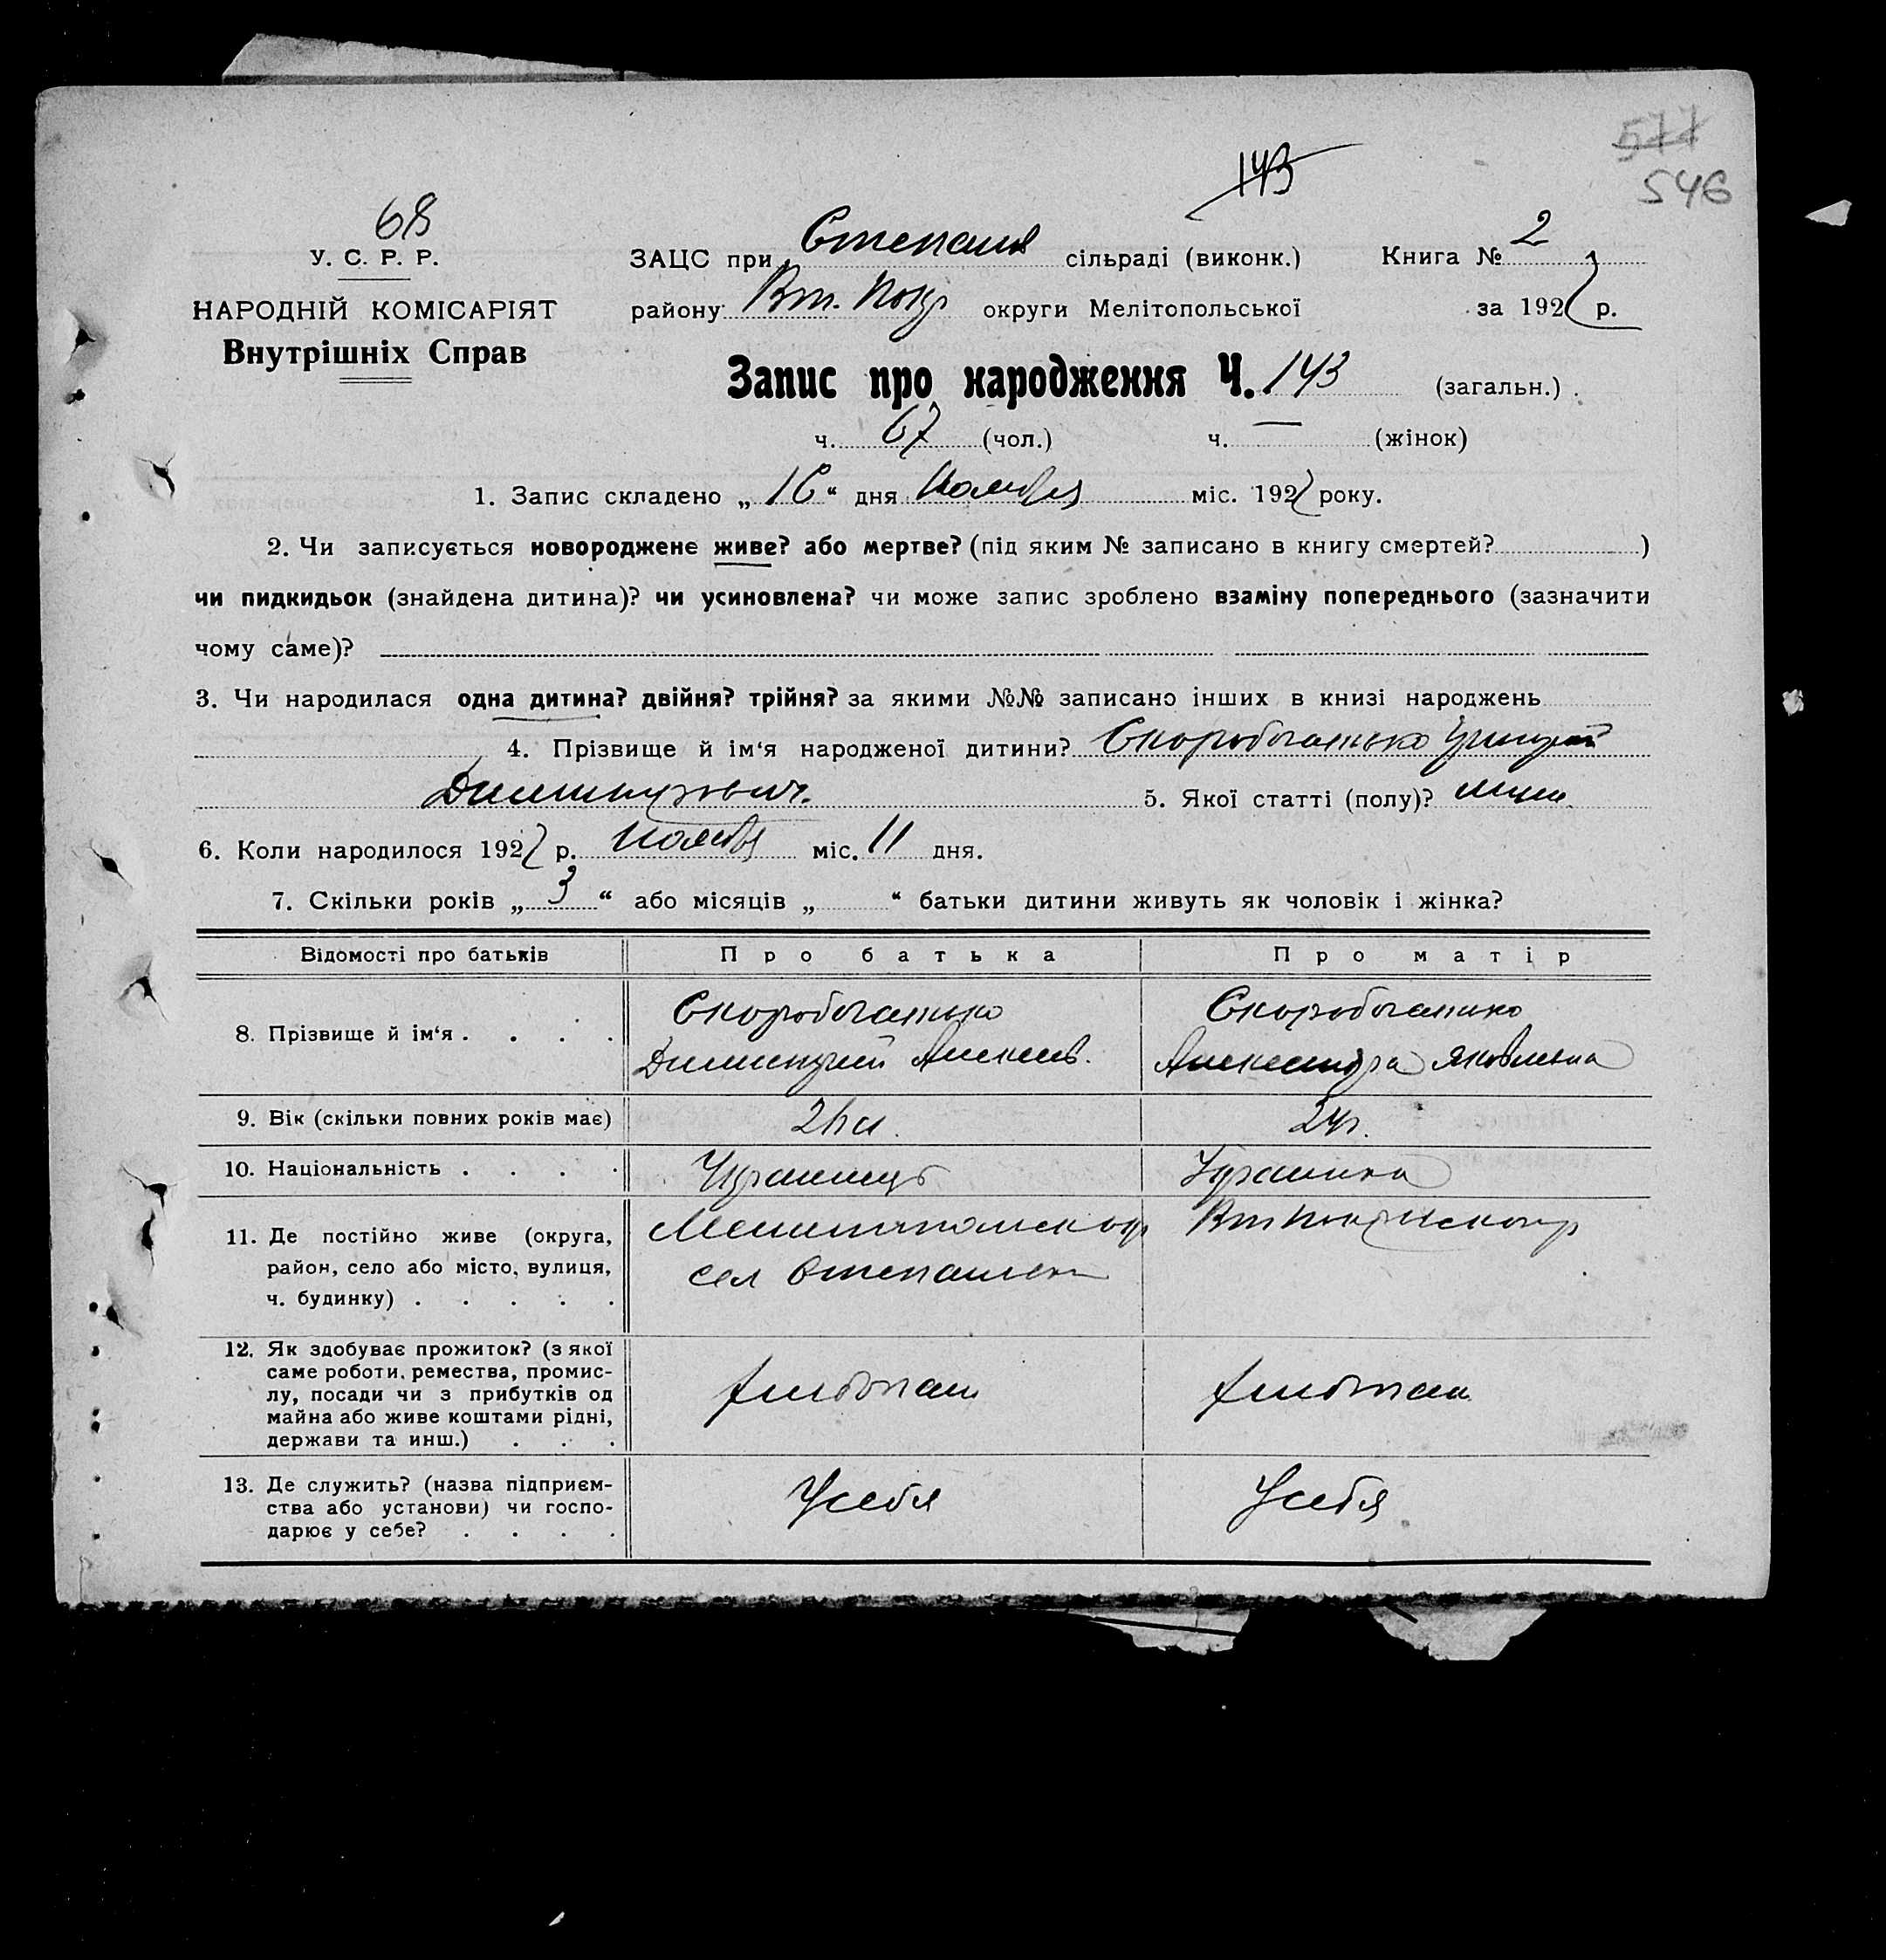 577
546
143
68
У. С. Р. Р.
НАРОДНІЙ КОМІСАРІЯТ
Внутрішніх Справ
ЗАЦС при сільраді (виконк.) Книга № 2
району Вт. Покр округи Мелітопольської за 1927 р.
Запис про народження Ч. 143 (загальн.)
ч. 67 (чол.) ч. — (жінок)
1. Запис складено „16“ дня Ноября міс. 1927 року.
2. Чи записується новороджене живе? або мертве? (під яким № записано в книгу смертей? )
чи пидкидьок (знайдена дитина)? чи усиновлена? чи може запис зроблено взаміну попереднього (зазначити
чому саме)?
3. Чи народилася одна дитина? двійня? трійня? за якими №№ записано інших в книзі народжень
4. Прізвище й ім‘я народженої дитини? Скоробогатько
Димитрович. 5. Якої статті (полу)? муж.
6. Коли народилося 1927 р. Ноября міс. 11 дня.
7. Скільки років „3“ або місяців „ “ батьки дитини живуть як чоловік і жінка?
Відомості про батьків Про батька Про матір
8. Прізвище й ім‘я . . . . Скоробогатько Скоробогатько
Димитрий Алексеев. Александра Яковлевна
9. Вік (скільки повних років має) 24г.
10. Національність . . . . Украинец Украинка
11. Де постійно живе (округа,
район, село або місто, вулиця,
ч. будинку) . . . . .
Мелитопольск окр Вт Покр
сел
12. Як здобуває прожиток? (з якої
саме роботи, ремества, промис-
лу, посади чи з прибутків од
майна або живе коштами рідні,
держави та инш.) . . .
хлебопаш хлебопаш
13. Де служить? (назва підприєм-
ства або установи) чи госпо-
дарює у себе? . . . .
У себя У себя